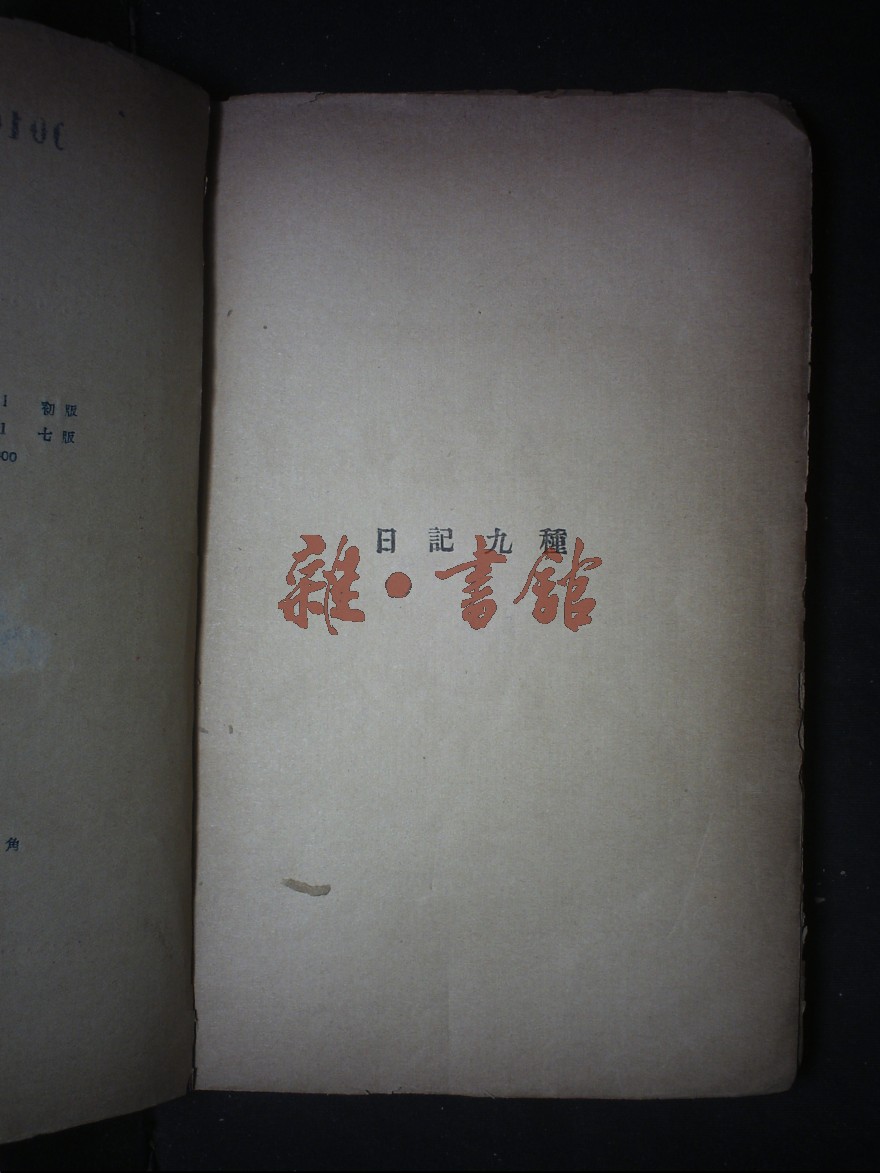 1 初版
1 七版
00
角
日記九種
雜·書館